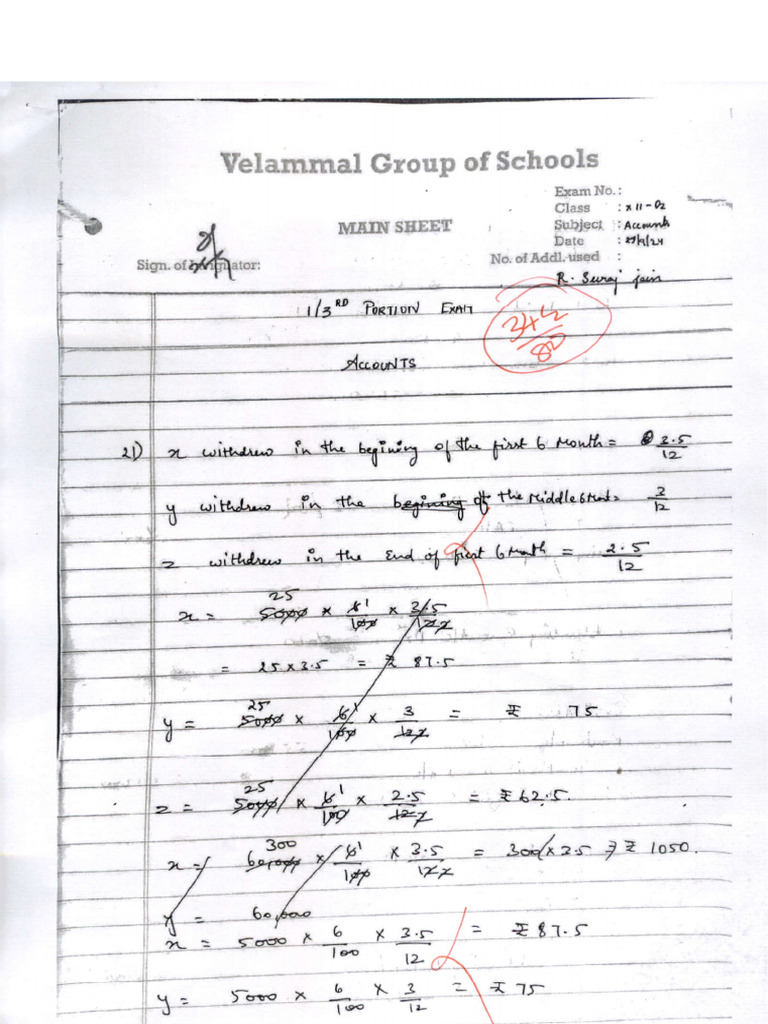 Velammal Group of Schools
Exam No. :
Class : XII-02
MAIN SHEET
Subject : Accounts
Date : 27/4/24
Sign. of Invigilator:
No. of Addl. used :
R. Suraj jain
1/3RD PORTION EXAM
34½/80
ACCOUNTS
21) x withdrew in the begining of the first 6 Month = 3.5/12
y withdrew in the begining of the Middle 6 Mont = 3/12
z withdrew in the End of first 6 Month = 2.5/12
25
x = 5000 × 6 1/100 × 3.5/12
= 25 × 3.5 = ₹ 87.5
25
y = 5000 × 6 1/100 × 3/12 = ₹ 75
25
z = 5000 × 6 1/100 × 2.5/12 = ₹ 62.5.
300
x = 60,000 × 6 1/100 × 3.5/12 = 300 × 3.5 = ₹ 1050.
y = 60,000
x = 5000 × 6/100 × 3.5/12 = ₹ 87.5
y = 5000 × 6/100 × 3/12 = ₹ 75